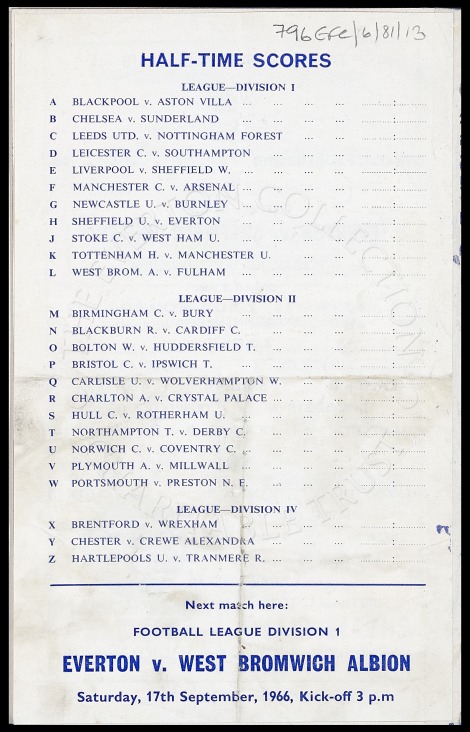 796 EFC/6/81/13
HALF-TIME SCORES
LEAGUE—DIVISION I
A BLACKPOOL v. ASTON VILLA ... ... ... :
B CHELSEA v. SUNDERLAND ... ... ... ... :
C LEEDS UTD. v. NOTTINGHAM FOREST ... ... :
D LEICESTER C. v. SOUTHAMPTON ... ... ... :
E LIVERPOOL v. SHEFFIELD W. ... ... ... ... :
F MANCHESTER C. v. ARSENAL ... ... ... ... :
G NEWCASTLE U. v. BURNLEY ... ... ... :
H SHEFFIELD U. v. EVERTON ... ... ... ... :
J STOKE C. v. WEST HAM U. ... ... ... ... :
K TOTTENHAM H. v. MANCHESTER U. ... ... :
L WEST BROM. A. v. FULHAM ... ... ... ... :
LEAGUE—DIVISION II
M BIRMINGHAM C. v. BURY ... ... ... ... :
N BLACKBURN R. v. CARDIFF C. ... ... ... :
O BOLTON W. v. HUDDERSFIELD T. ... ... :
P BRISTOL C. v. IPSWICH T. ... ... ... ... :
Q CARLISLE U. v. WOLVERHAMPTON W. ... ... :
R CHARLTON A. v. CRYSTAL PALACE ... ... ... :
S HULL C. v. ROTHERHAM U. ... ... ... ... :
T NORTHAMPTON T. v. DERBY C. ... ... ... :
U NORWICH C. v. COVENTRY C. ... ... ... ... :
V PLYMOUTH A. v. MILLWALL ... ... ... ... :
W PORTSMOUTH v. PRESTON N. E. ... ... ... :
LEAGUE—DIVISION IV
X BRENTFORD v. WREXHAM ... ... ... ... :
Y CHESTER v. CREWE ALEXANDRA ... ... ... :
Z HARTLEPOOLS U. v. TRANMERE R. ... ... ... :
Next match here:
FOOTBALL LEAGUE DIVISION 1
EVERTON v. WEST BROMWICH ALBION
Saturday, 17th September, 1966, Kick-off 3 p.m